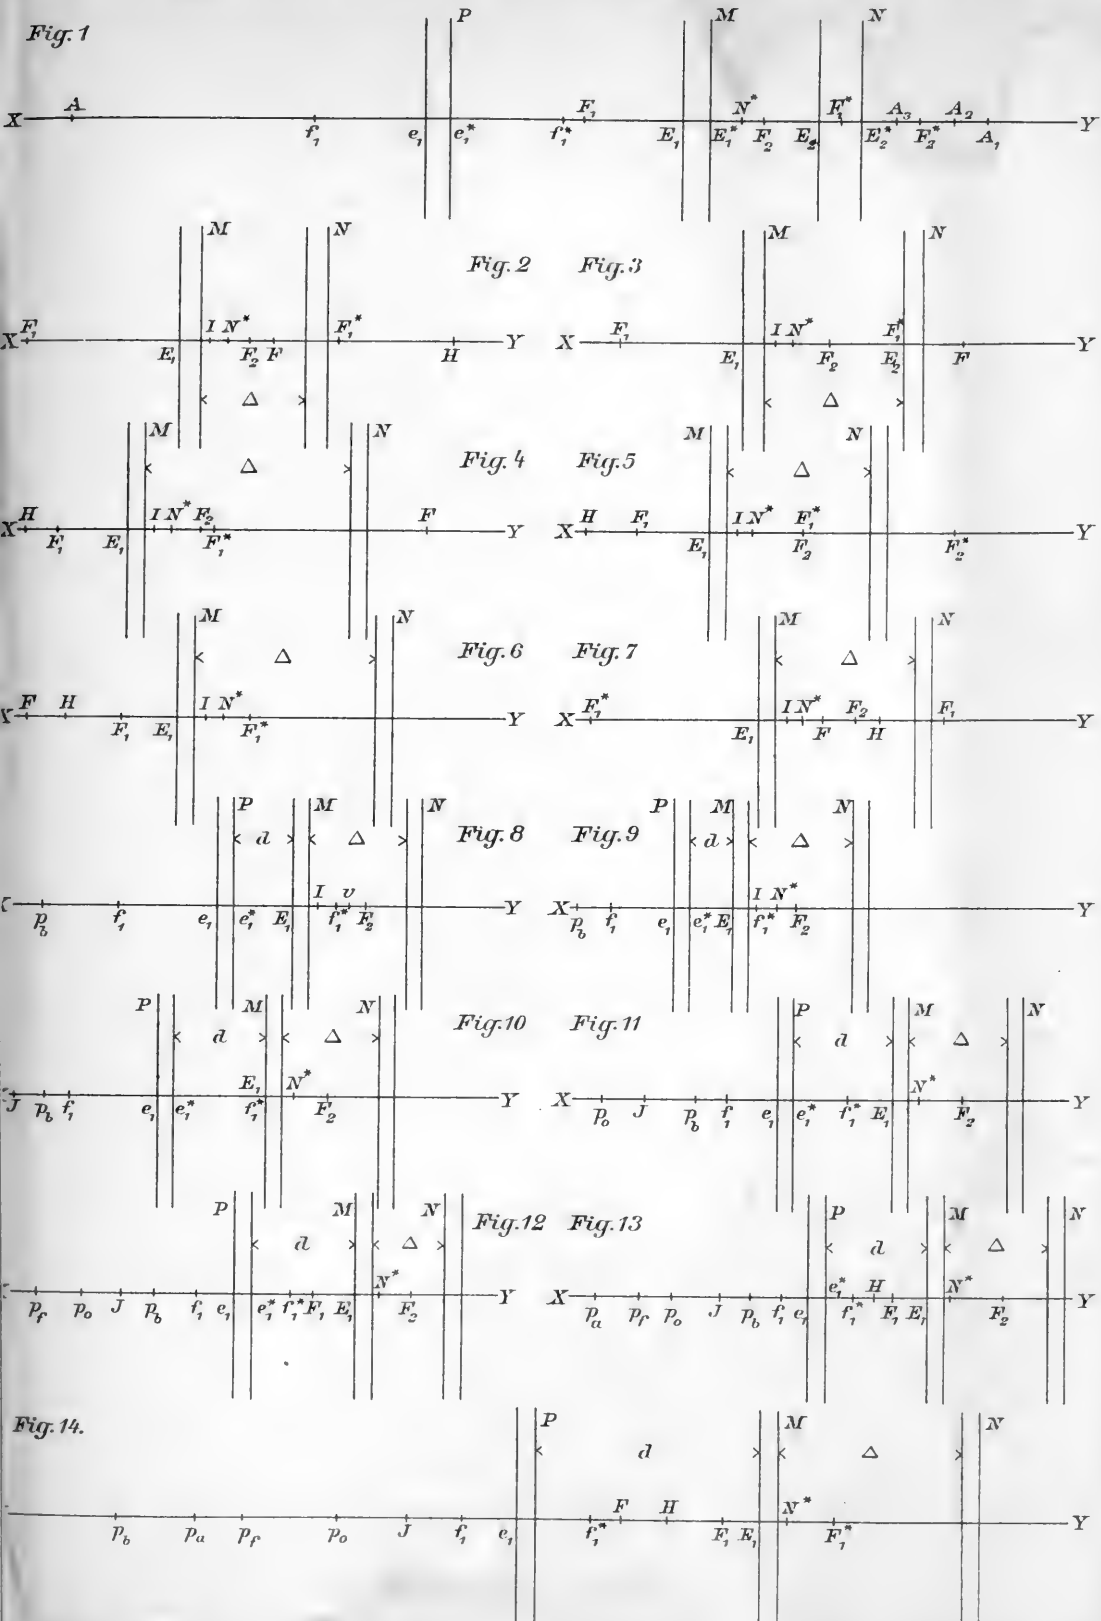 Fig. 1 P M N
X A f₁ e₁ e₁* f₁* F₁ E₁ E₁* N* F₂ E₂ F₁* E₂* A₃ F₂* A₂ A₁ Y
Fig. 2
M N
X F₁ E₁ I N* F₂ F F₁* H Y
Δ
Fig. 3
M N
X F₁ E₁ I N* F₂ F₁* E₂ F Y
Δ
Fig. 4
M N
Δ
X H F₁ E₁ I N* F₂ F₁* F Y
Fig. 5
M N
Δ
X H F₁ E₁ I N* F₁* F₂ F₂* Y
Fig. 6
M N
Δ
X F H F₁ E₁ I N* F₁* Y
Fig. 7
M N
Δ
X F₁* E₁ I N* F F₂ H F₁ Y
Fig. 8
P M N
d Δ
p_b f₁ e₁ e₁* E₁ I f₁* v F₂ Y
Fig. 9
P M N
d Δ
X p_b f₁ e₁ e₁* E₁ I f₁* N* F₂ Y
Fig. 10
P M N
d Δ
J p_b f₁ e₁ e₁* E₁ f₁* N* F₂ Y
Fig. 11
P M N
d Δ
X p_o J p_b f₁ e₁ e₁* f₁* E₁ N* F₂ Y
Fig. 12
P M N
d Δ
p_f p_o J p_b f₁ e₁ e₁* f₁* F₁ E₁ N* F₂ Y
Fig. 13
P M N
d Δ
X p_a p_f p_o J p_b f₁ e₁ e₁* f₁* H F₁ E₁ N* F₂ Y
Fig. 14.
P M N
d Δ
p_b p_a p_f p_o J f₁ e₁ f₁* F H F₁ E₁ N* F₁* Y